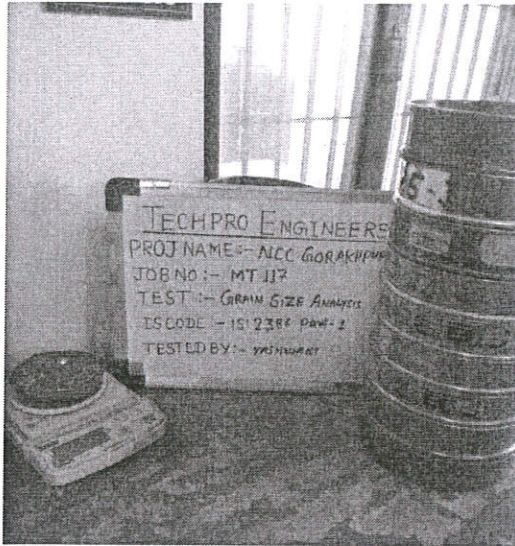 TECHPRO ENGINEERS
PROJ NAME:- NCC GORAKHPUR
JOB NO:- MT 117
TEST:- GRAIN SIZE ANALYSIS
IS CODE:- IS:2386 PART-1
TESTED BY:- YASHWANT